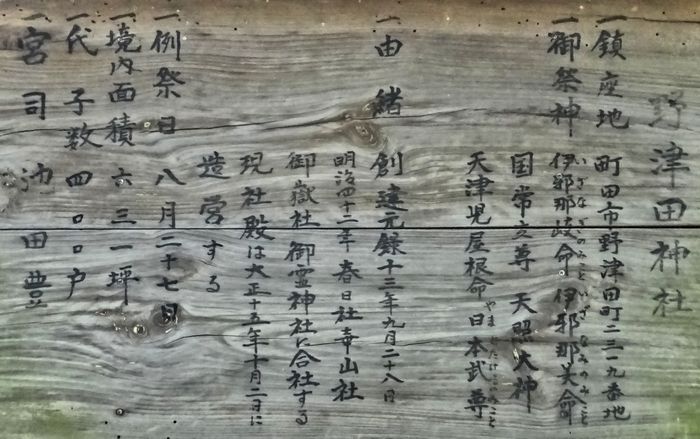 野津田神社
一鎮座地 町田市野津田町二三一九番地
一御祭神 伊邪那岐命 伊邪那美命
いざなぎのみこと いざなみのみこと
国常立尊 天照大神
天津児屋根命 日本武尊
やまとたけるのみこと
一由緒 創建元録十三年九月二十八日
明治四十二年 春日社 幸山社
御嶽社 御霊神社に合社する
現社殿は大正十五年十月二日に
造営する
一例祭日 八月二十七日
一境内面積 六三一坪
一代子数 四〇〇戸
一宮司 池田豊